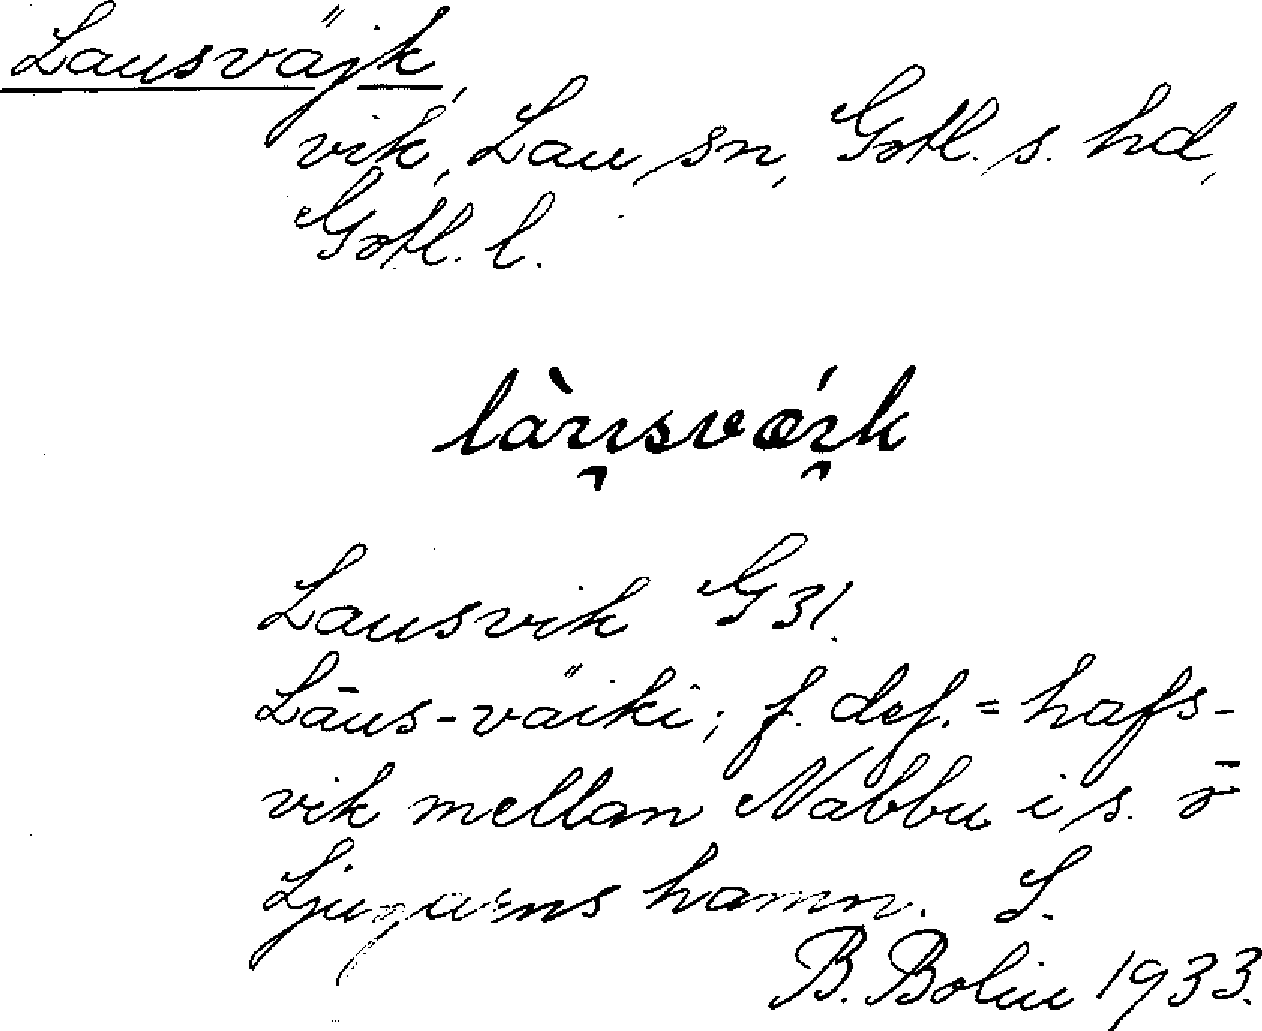 Lausväjk,
vik, Lau sn, Gotl. s. hd,
Gotl. l.
làu̯svǽi̯k
Lausvik G 31.
Lāus-väiki; f. def. = hafs-
vik mellan Nabbu i s. o
Ljugarns hamn. S.
B. Bolin 1933.